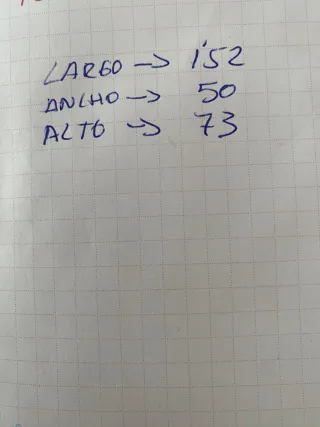 LARGO → 1'52
ANCHO → 50
ALTO → 73